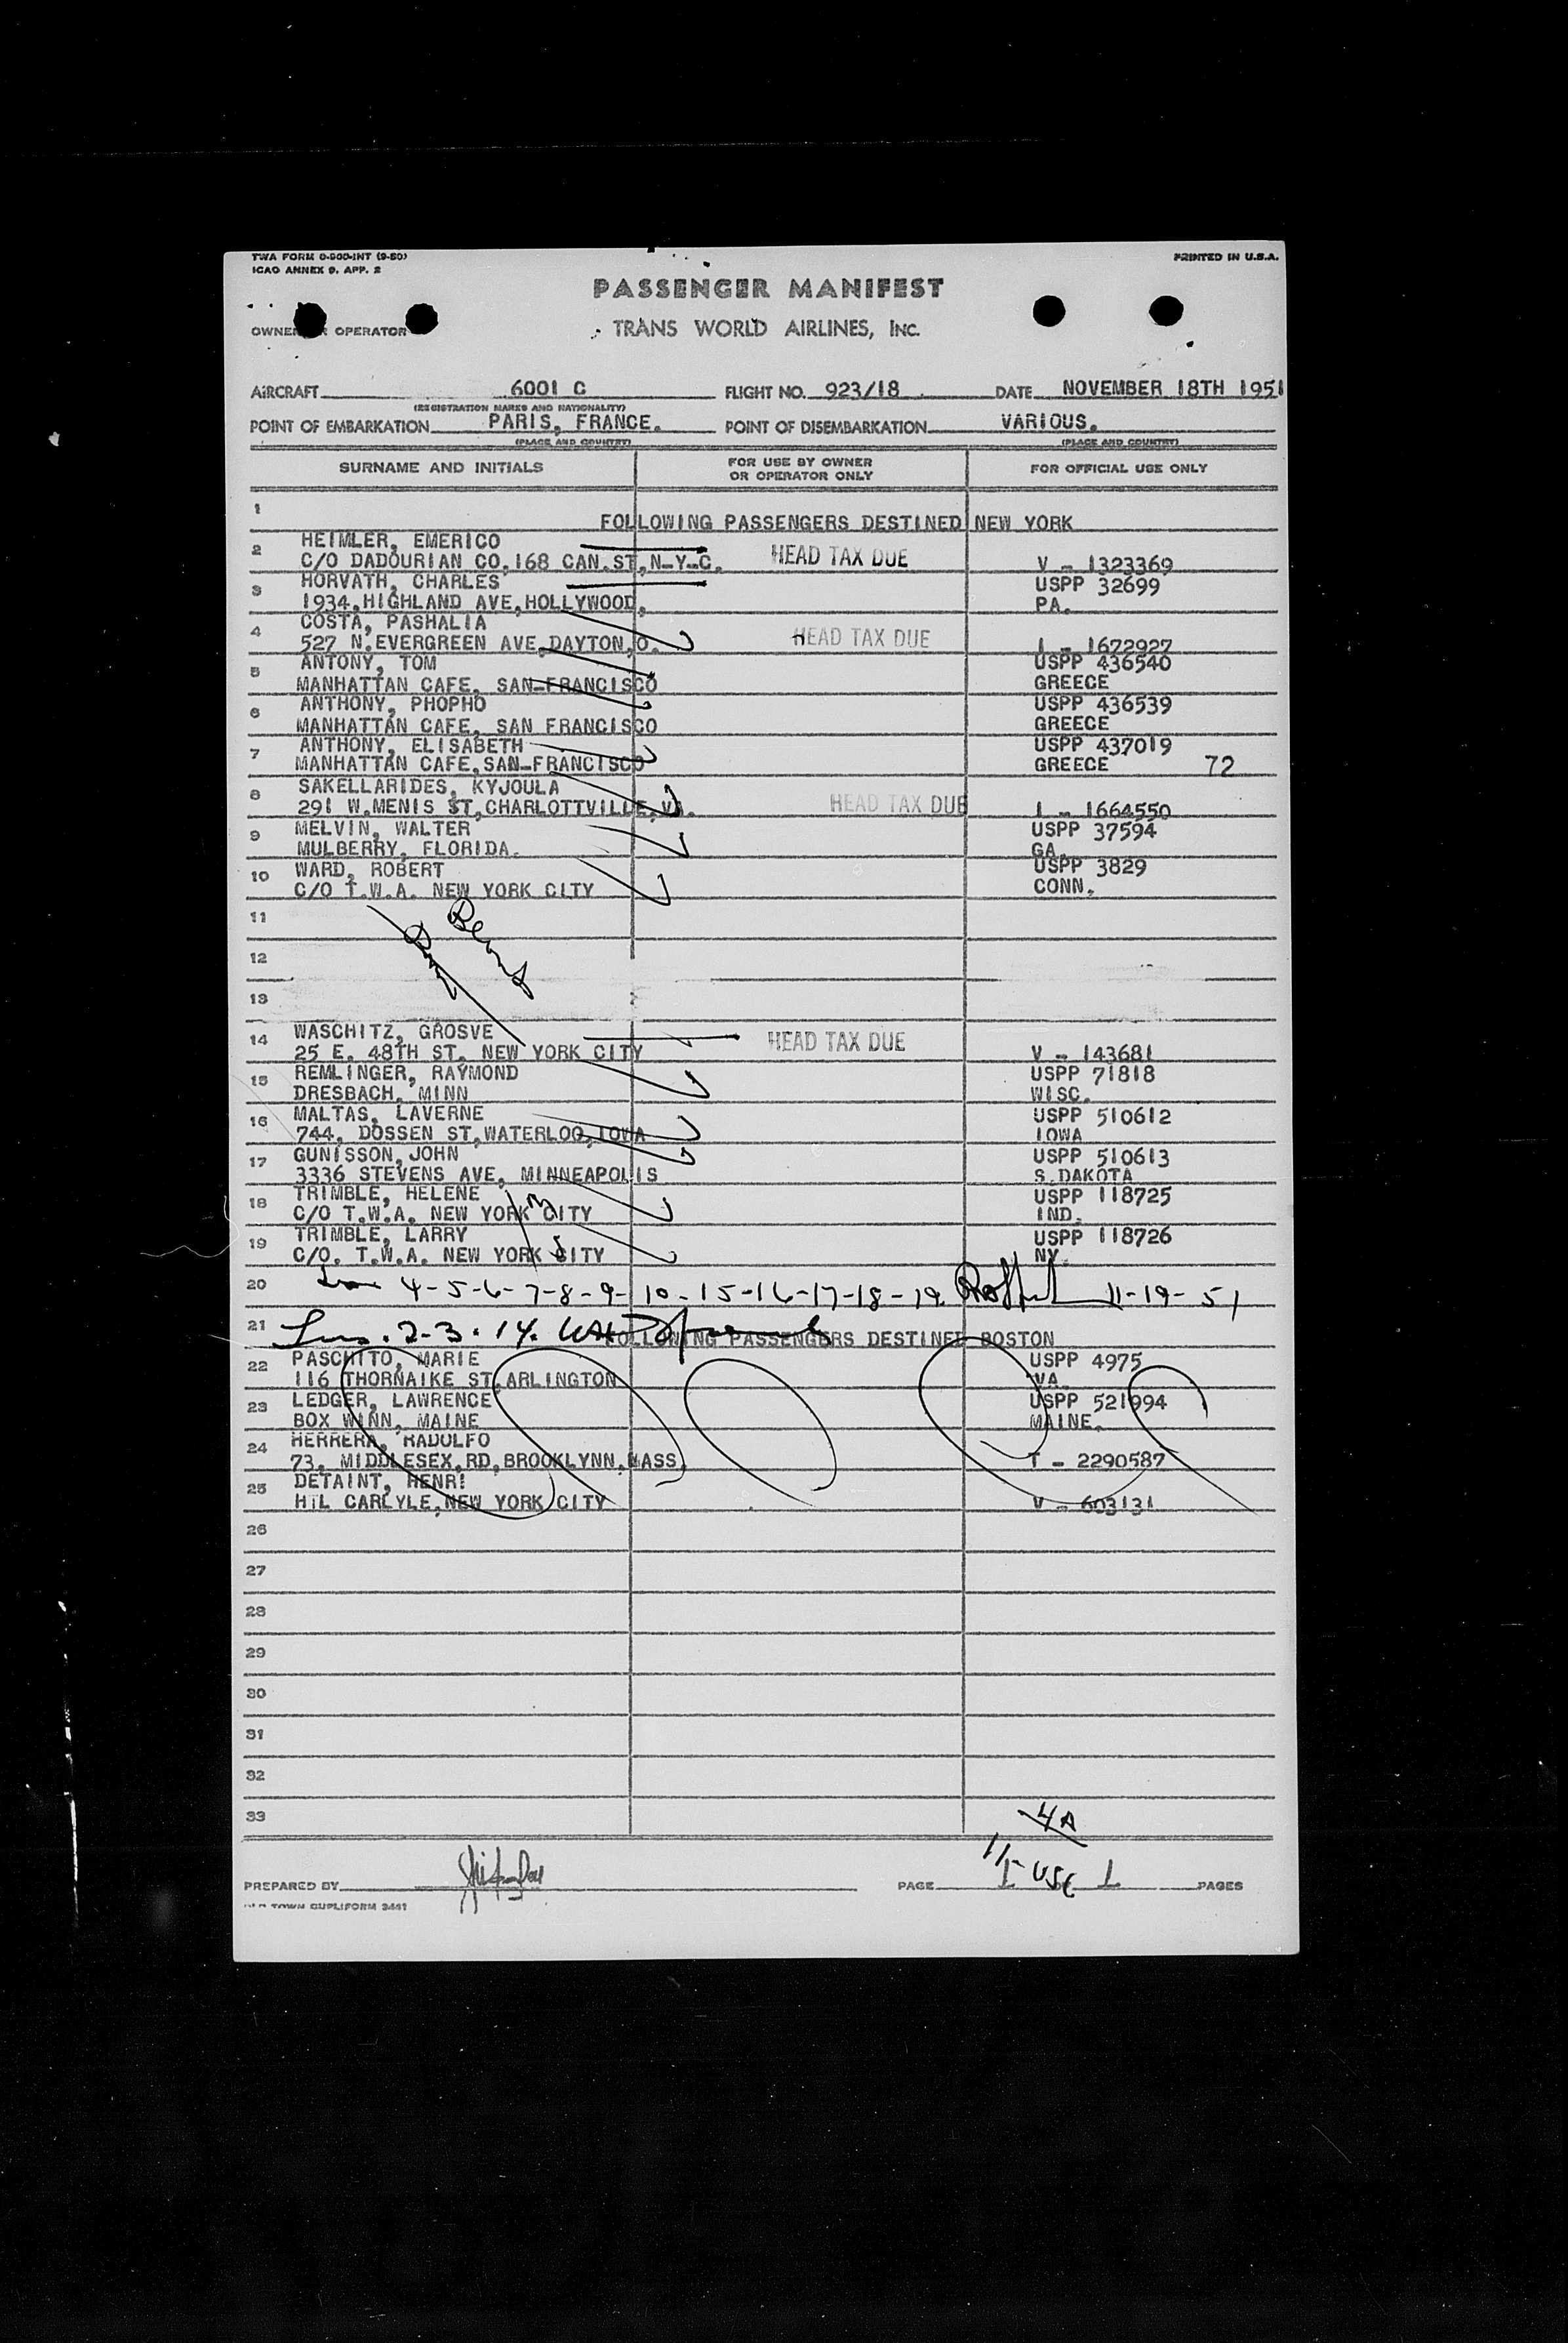 TWA FORM O-900-INT (9-50)
ICAO ANNEX 9, APP. 2
PRINTED IN U.S.A.
PASSENGER MANIFEST
OWNER OPERATOR
TRANS WORLD AIRLINES, INC.
AIRCRAFT 6001 C FLIGHT NO. 923/18 DATE NOVEMBER 18TH 1951
(REGISTRATION MARKS AND NATIONALITY)
POINT OF EMBARKATION PARIS, FRANCE. POINT OF DISEMBARKATION VARIOUS.
(PLACE AND COUNTRY) (PLACE AND COUNTRY)
SURNAME AND INITIALS FOR USE BY OWNER OR OPERATOR ONLY FOR OFFICIAL USE ONLY
1 FOLLOWING PASSENGERS DESTINED NEW YORK
2 HEIMLER, EMERICO
C/O DADOURIAN CO,168 CAN.ST,N-Y-C. HEAD TAX DUE V - 1323369
3 HORVATH, CHARLES USPP 32699
1934,HIGHLAND AVE,HOLLYWOOD, PA.
4 COSTA, PASHALIA
527 N.EVERGREEN AVE,DAYTON,O. HEAD TAX DUE I - 1672927
5 ANTONY, TOM USPP 436540
MANHATTAN CAFE, SAN-FRANCISCO GREECE
6 ANTHONY, PHOPHO USPP 436539
MANHATTAN CAFE, SAN FRANCISCO GREECE
7 ANTHONY, ELISABETH USPP 437019
MANHATTAN CAFE,SAN-FRANCISCO GREECE 72
8 SAKELLARIDES, KYJOULA
291 W.MENIS ST,CHARLOTTVILLE,VA. HEAD TAX DUE I - 1664550
9 MELVIN, WALTER USPP 37594
MULBERRY, FLORIDA. GA.
10 WARD, ROBERT USPP 3829
C/O T.W.A. NEW YORK CITY CONN.
11
12
13
14 WASCHITZ, GROSVE
25 E. 48TH ST. NEW YORK CITY HEAD TAX DUE V - 143681
15 REMLINGER, RAYMOND USPP 71818
DRESBACH, MINN WISC.
16 MALTAS, LAVERNE USPP 510612
744, DOSSEN ST,WATERLOO,IOWA IOWA
17 GUNISSON,JOHN USPP 510613
3336 STEVENS AVE, MINNEAPOLIS S.DAKOTA
18 TRIMBLE, HELENE USPP 118725
C/O T.W.A. NEW YORK CITY IND.
19 TRIMBLE, LARRY USPP 118726
C/O. T.W.A. NEW YORK CITY NY.
20 4-5-6-7-8-9-10-15-16-17-18-19 11-19-51
21 2-3-14. FOLLOWING PASSENGERS DESTINED BOSTON
22 PASCHITO, MARIE USPP 4975
116 THORNAIKE ST,ARLINGTON VA.
23 LEDGER, LAWRENCE USPP 521994
BOX WINN, MAINE MAINE.
24 HERRERA, RADULFO
73, MIDDLESEX,RD,BROOKLYNN,MASS. T - 2290587
25 DETAINT, HENRI
HTL CARLYLE,NEW YORK CITY V - 603131
26
27
28
29
30
31
32
33
4A
11- USC
PREPARED BY PAGE 1 1 PAGES
OLD TOWN DUPLIFORM 3441